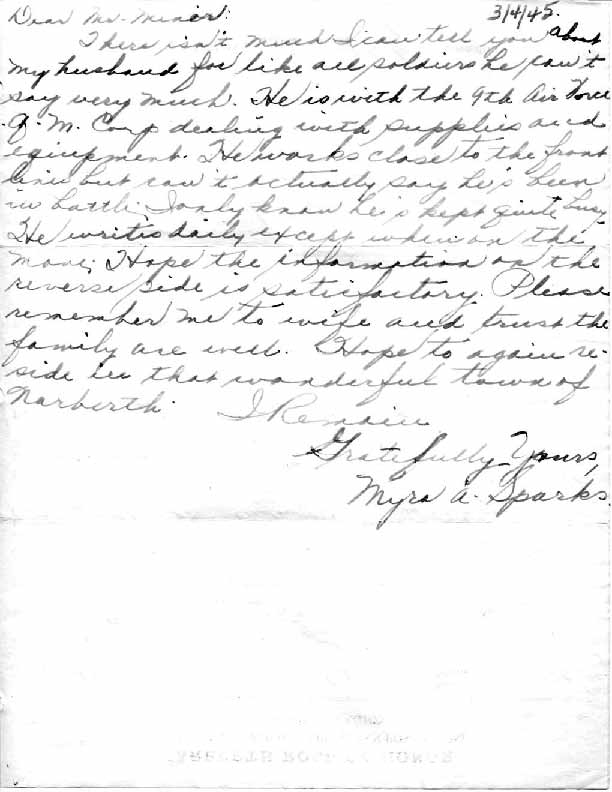 Dear Mr. Miner: 3/4/45.
There isn't much I can tell you about
my husband for like all soldiers he can't
say very much. He is with the 9th Air Force
Q.M. Corp dealing with supplies and
equipment. He works close to the front
line but can't actually say he's been
in battle. I only know he's kept quite busy.
He writes daily except when on the
move. Hope the information on the
reverse side is satisfactory. Please
remember me to wife and trust the
family are well. Hope to again re-
side in that wonderful town of
Narberth. I Remain
Gratefully Yours,
Myra A. Sparks.